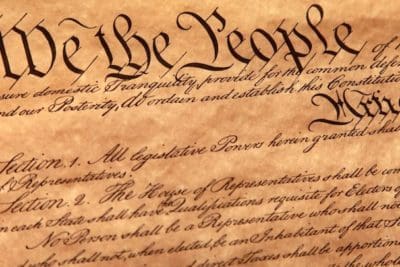 We the People of
sure domestic Tranquility, provide for the common defen
nd our Posterity, do ordain and establish this Constitutio
Section. 1. All legislative Powers herein granted shal
Representatives.
Section. 2. The House of Representatives shall be com
n each State shall have the Qualifications requisite for Electors of
No Person shall be a Representative who shall not
d who shall not, when elected, be an Inhabitant of that
direct Taxes shall be apportion
the whole